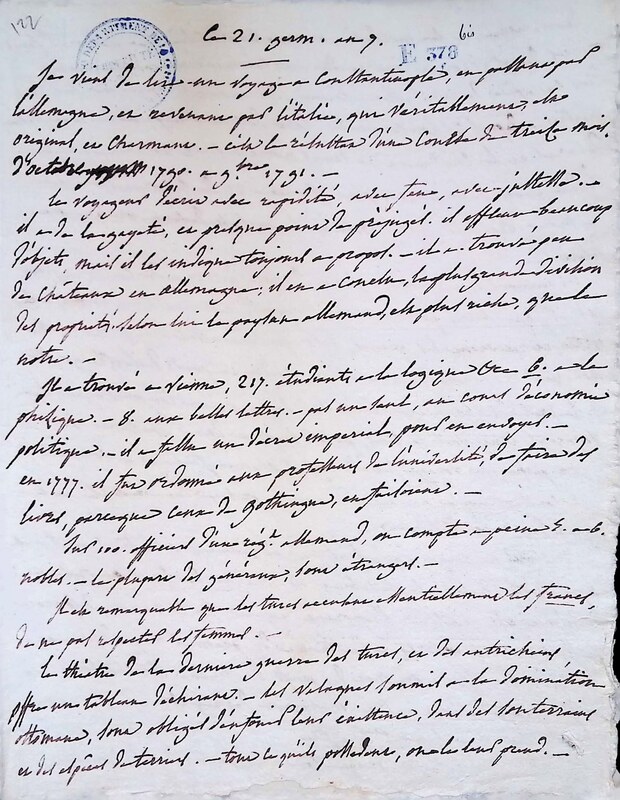 122
DÉPARTEMENT
le 21. germ. an 9.
bis
E 378
Je viens de lire un voyage a Constantinople, en passant par
l'allemagne, et revenant par l'italie, qui véritablement, est
original, et charmant. - c'est le résultat d'une course de treize mois,
d'octobre 1790. a 9.bre 1791. -
le voyageur écrit avec rapidité, avec feu, avec justesse. -
il a de la gayeté, et presque point de préjugés. il effleure beaucoup
d'objets, mais il les indique toujours a propos. - il a trouvé peu
de châteaux en allemagne; il en a conclu, la plus grande division
des propriétés. selon lui le paysan allemand, est plus riche, que le
notre. -
Il a trouvé a vienne, 217. étudiants a la logique 6. a la
phisique. - 8. aux belles lettres. - pas un seul, au cours d'économie
politique. - il a fallu un décret imperial, pour en envoyer. -
en 1777. il fut ordonné aux professeurs de l'université, de faire des
livres, parceque ceux de gothingue, en faisoient. -
Sur 100. officiers d'un rég.t allemand, on compte a peine 5. a 6.
nobles. - la plupart des généraux, sont étrangers. -
Il est remarquable que les turcs accusent essentiellement les francs,
de ne pas respecter les femmes. -
le théâtre de la derniere guerre des turcs, et des autrichiens
offre un tableau déchirant. - les valaques soumis a la domination
ottomane, sont obligés d'enfouir leur existence, dans des souterrains
et des espèces de terriers. - tout ce qu'ils possedent, on le leur prend. -